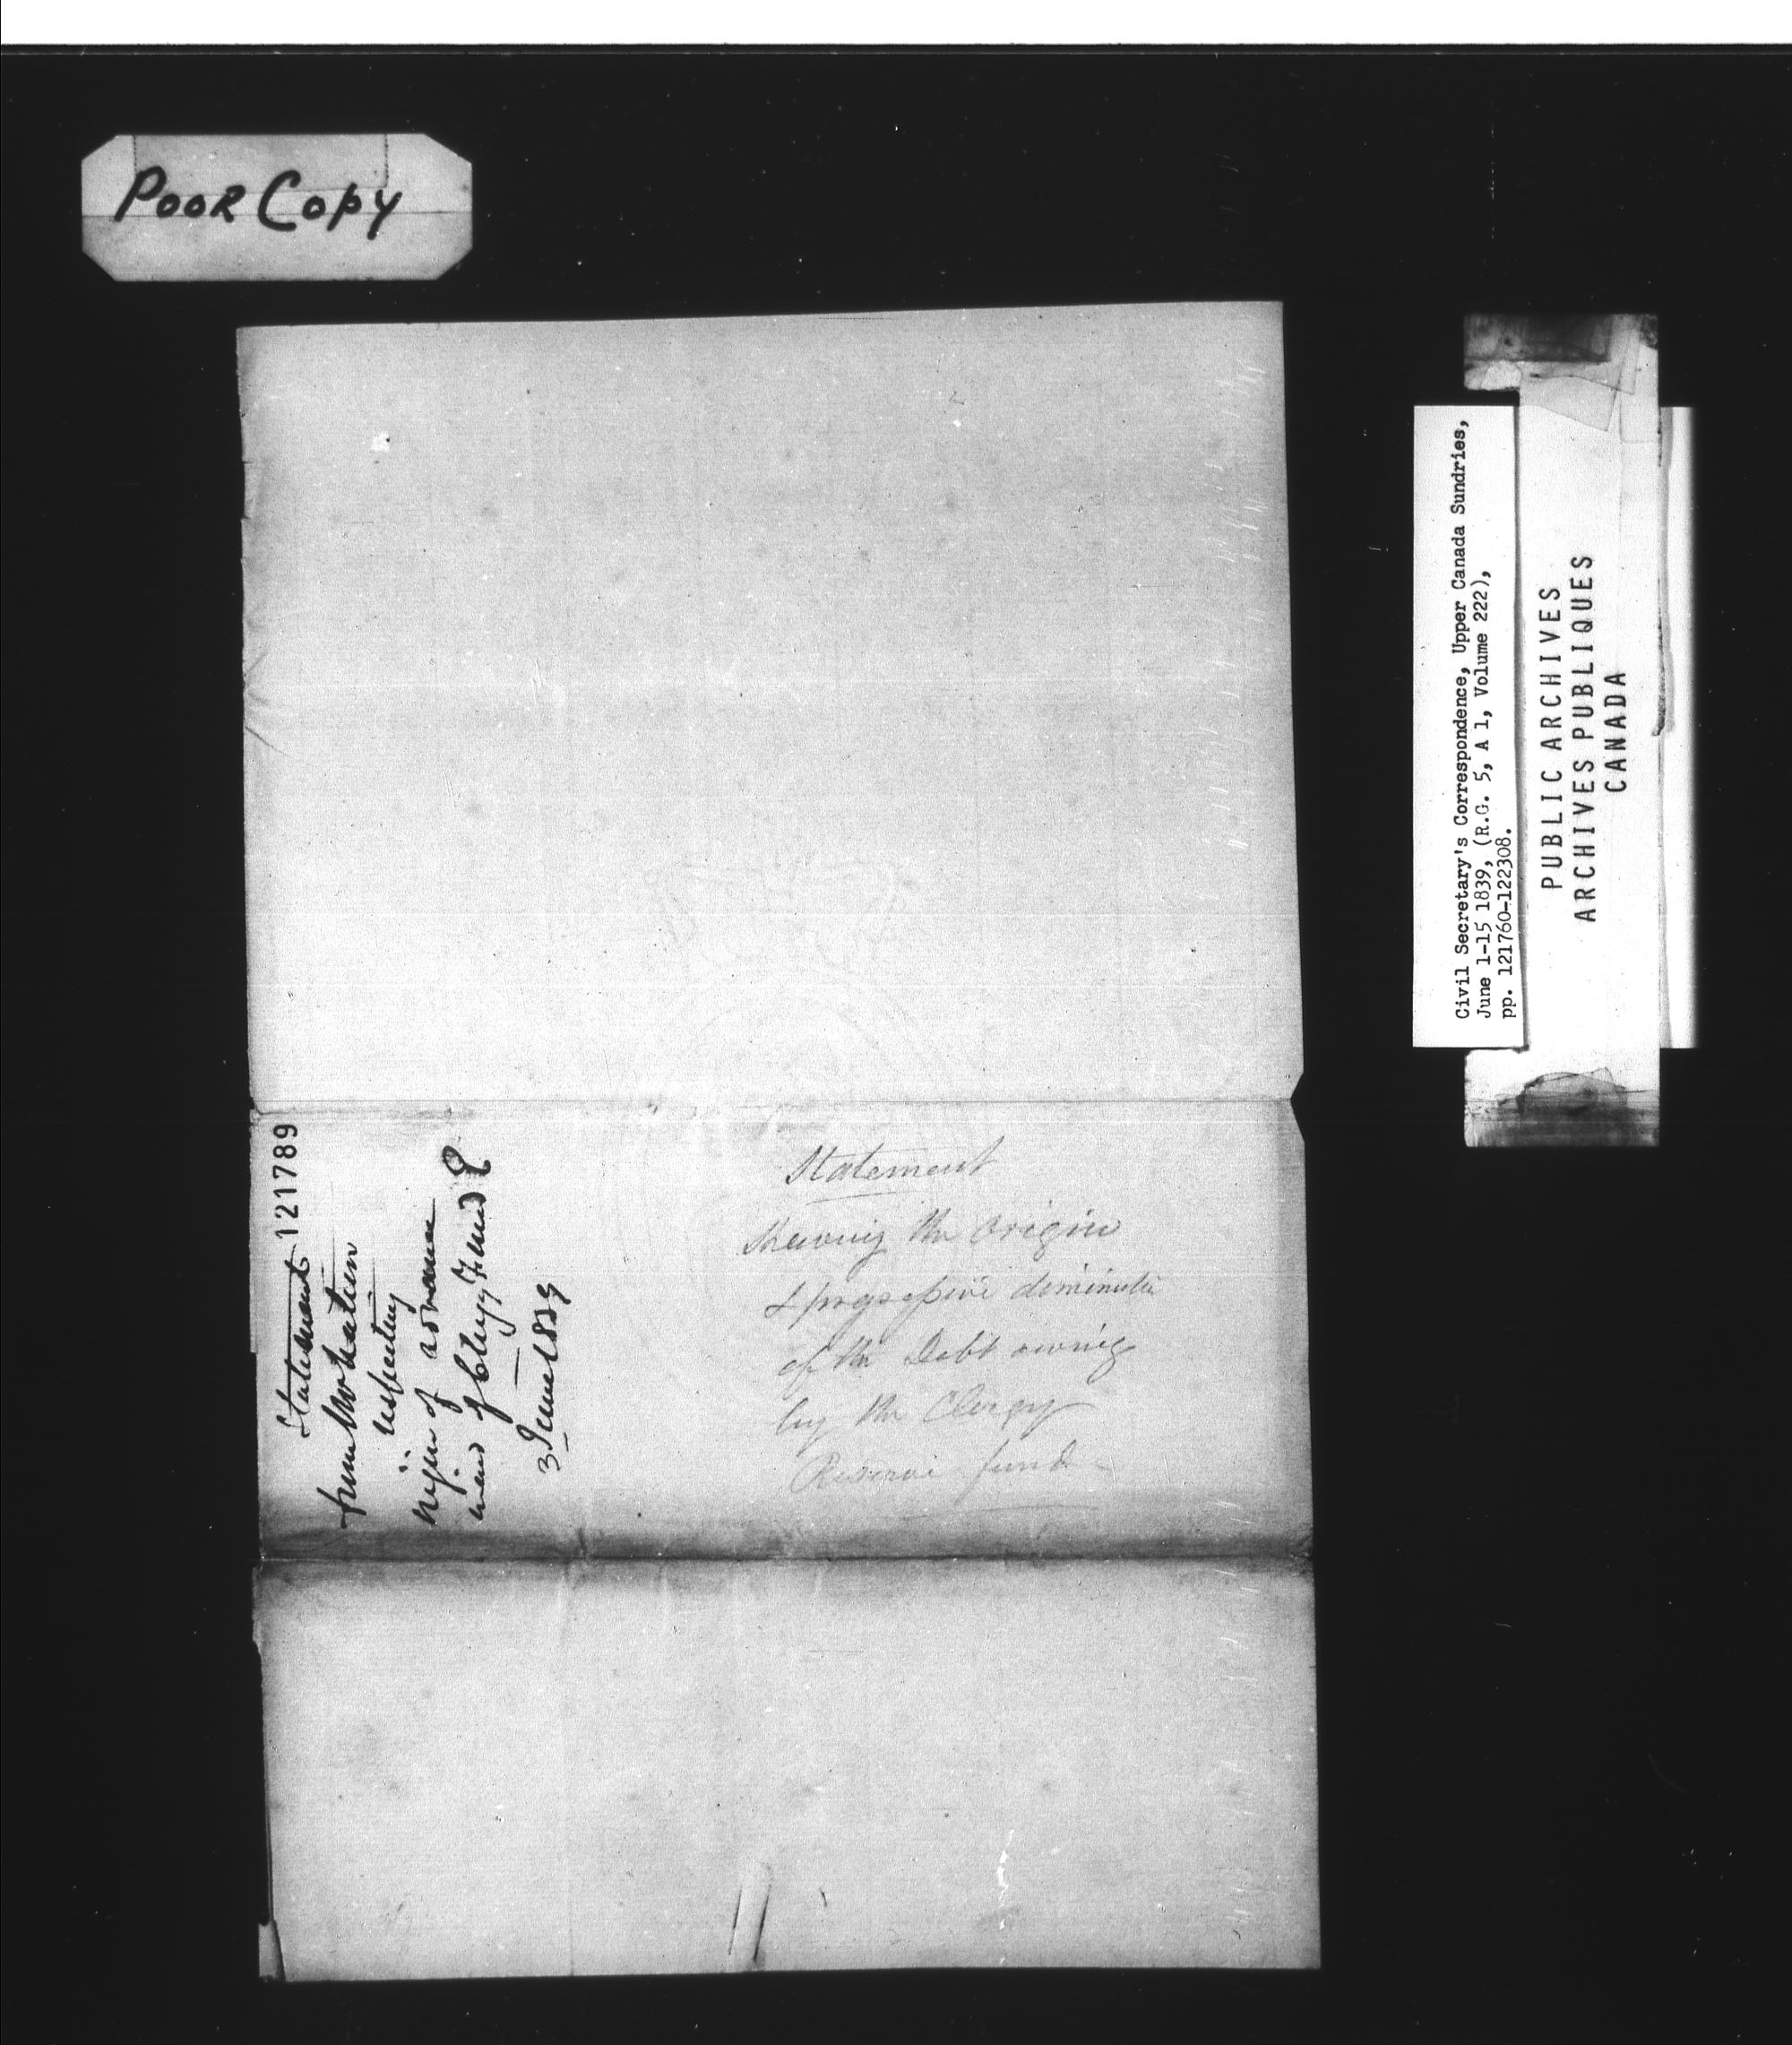 Poor Copy
121789
Statement
from
respecting
origin of
of Clergy Fund
3 June 1839
Statement
Shewing the Origin
& progressive diminution
of the Debt owing
by the Clergy
Reserve fund
Civil Secretary's Correspondence, Upper Canada Sundries,
June 1-15 1839, (R.G. 5, A 1, Volume 222),
pp. 121760-122308.
PUBLIC ARCHIVES
ARCHIVES PUBLIQUES
CANADA